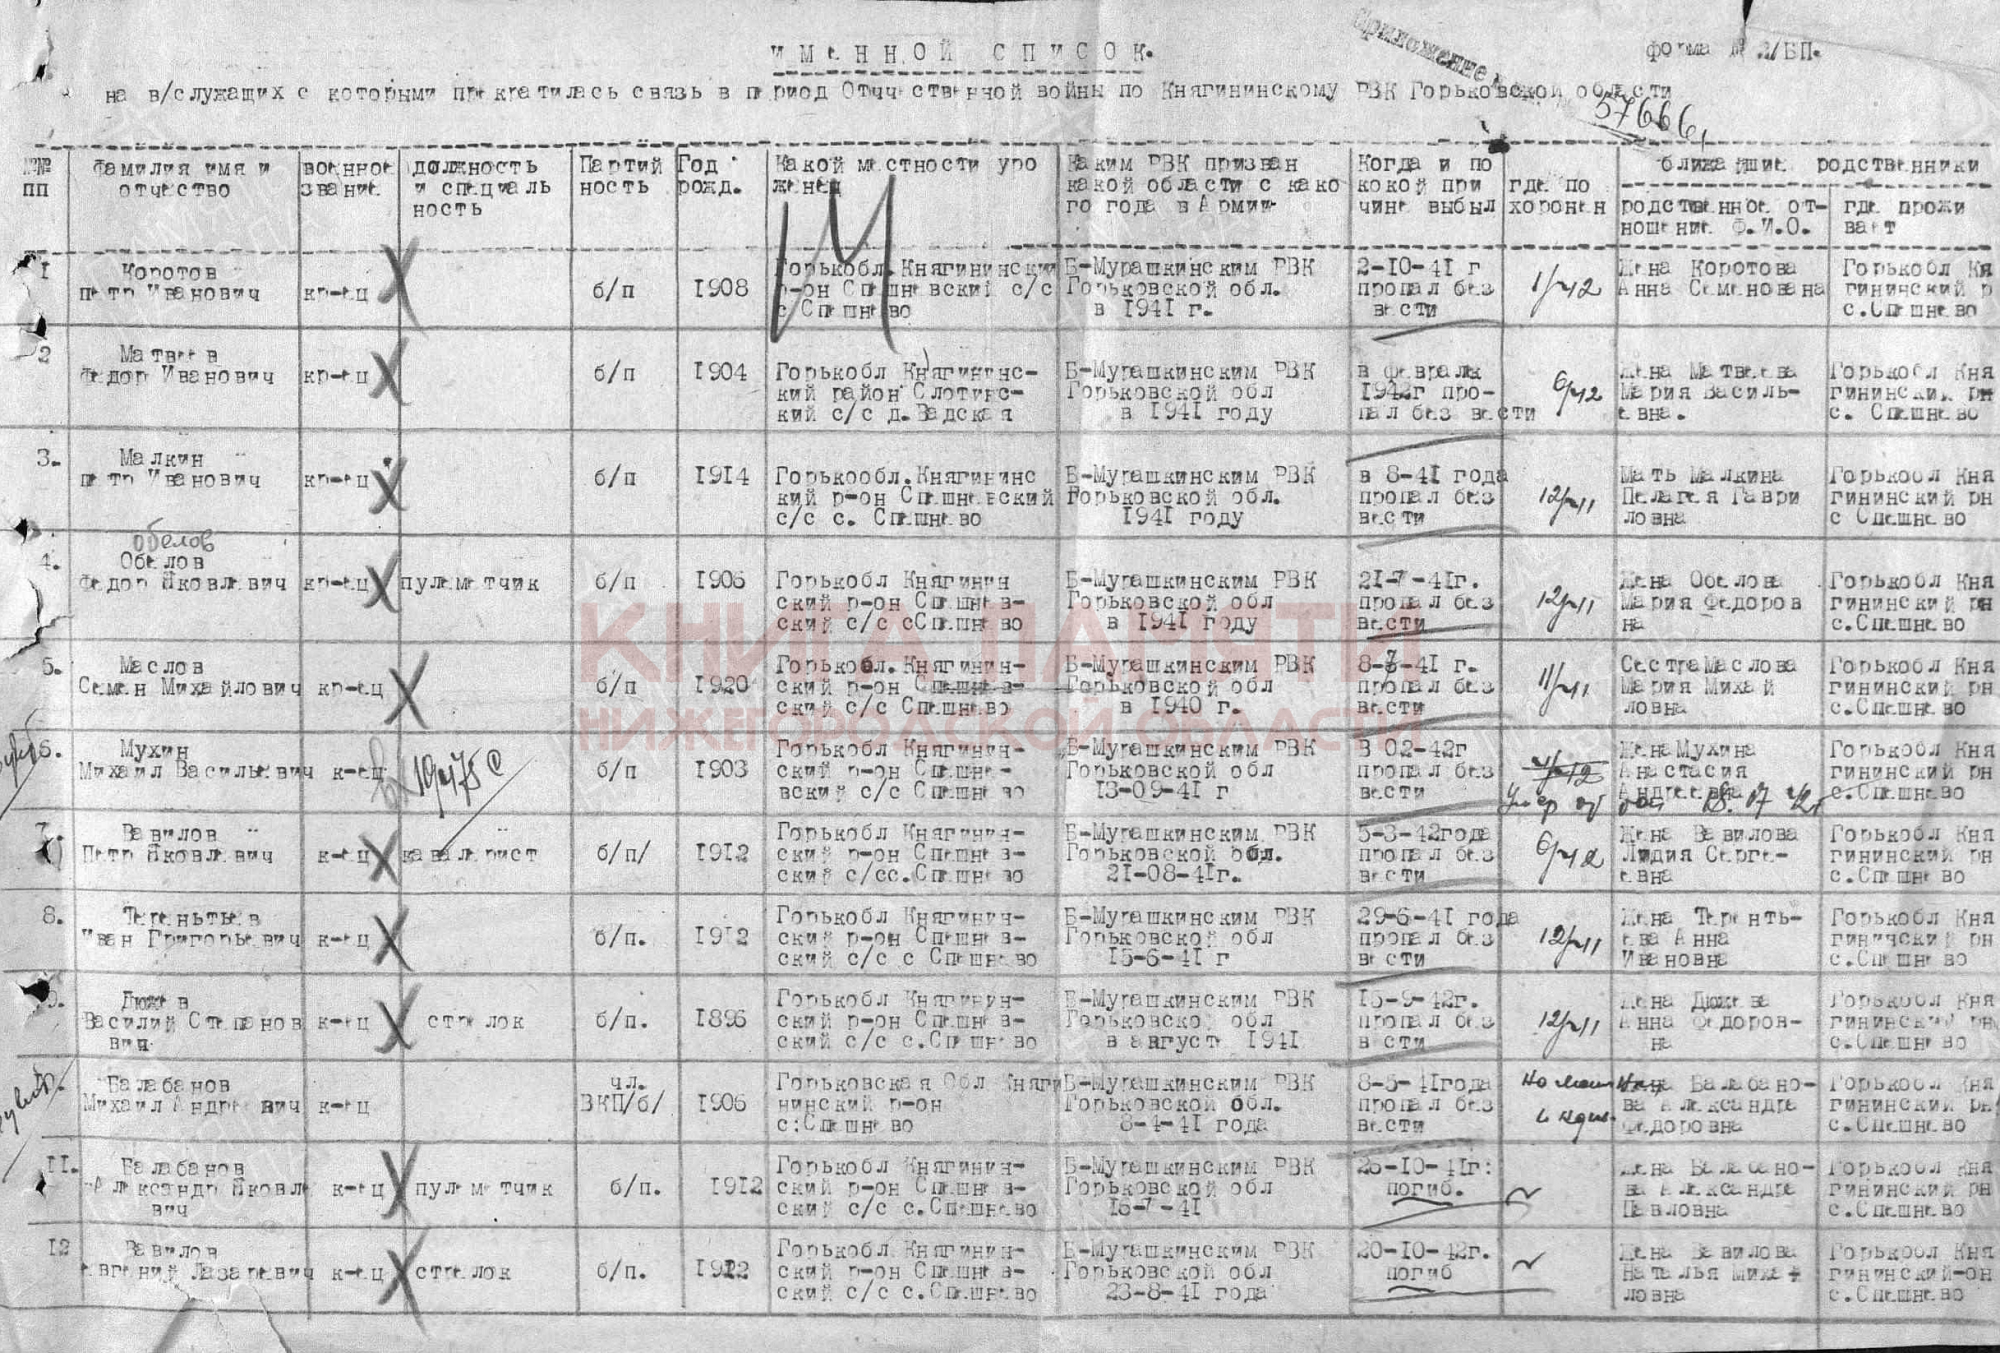 ИМЕННОЙ СПИСОК.
Приложение
форма № 2/БП.
на в/служащих с которыми прекратилась связь в период Отечественной войны по Княгининскому РВК Горьковской области
57666
№№ пп
фамилия имя и отчество
военное звание
должность и специаль ность
Партий ность
Год рожд.
Какой местности уро женец
Каким РВК призван какой области с како го года в Армии
Когда и по кокой при чине выбыл
где по хоронен
ближайшие родственники
родственное от- ношение Ф.И.О.
где прожи вает
1 Коротов Петр Иванович кр-ец б/п 1908 Горькобл.Княгининский р-он Спешневский с/с с Спешнево Б-Мурашкинским РВК Горьковской обл. в 1941 г. 2-10-41 г пропал без вести Жена Коротова Анна Семенована Горькобл Кня гининский р с.Спешнево
2 Матвеев Федор Иванович кр-ец б/п 1904 Горькобл Княгининс- кий район Слотинс- кий с/с д.Вадская Б-Мурашкинским РВК Горьковской обл в 1941 году в феврале 1942г про- пал без вести Жена Матвеева Мария Василь- евна. Горькобл Кня гининский рн с. Спешнево
3. Малкин Петр Иванович кр-ец б/п 1914 Горькообл.Княгининс кий р-он Спешневский с/с с. Спешнево Б-Мурашкинским РВК Горьковской обл. 1941 году в 8-41 года пропал без вести Мать Малкина Пелагея Гаври ловна Горькобл Кня гининский рн с Спешнево
обелов
4. Обелов Федор Яковлевич кр-ец пулеметчик б/п 1906 Горькобл Княгинин ский р-он Спешнев- ский с/с сСпешнево Б-Мурашкинским РВК Горьковской обл в 1941 году 21-7-41г. пропал без вести Жена Обелова Мария Федоров на Горькобл Кня гининский рн с.Спешнево
5. Маслов Семен Михайлович кр-ец б/п 1920 Горькобл.Княгинин- ский р-он Спешнев- ский с/с Спешнево Б-Мурашкинским РВК Горьковской обл в 1940 г. 8-7-41 г. пропал без вести СестраМаслова Мария Михай ловна Горькобл Кня гининский рн с.Спешнево
6. Мухин Михаил Васильевич к-ец б/п 1903 Горькобл Княгинин- ский р-он Спешне- вский с/с Спешнево Б-Мурашкинским РВК Горьковской обл 13-09-41 г В 02-42г пропал без вести ЖенаМухина Анастасия Андреевна Горькобл Кня гининский рн с.Спешнево
Умер от 18.
7. Вавилов Петр Яковлевич к-ец кавалерист б/п/ 1912 Горькобл Княгинин- ский р-он Спешнев- ский с/сс.Спешнево Б-Мурашкинским РВК Горьковской обл. 21-08-41г. 5-3-42года пропал без вести Жена Вавилова Лидия Серге- евна Горькобл Кня гининский рн с.Спешнево
8. Терентьев Иван Григорьевич к-ец б/п. 1912 Горькобл Княгинин- ский р-он Спешнев- ский с/с с Спешнево Б-Мурашкинским РВК Горьковской обл 15-6-41 г 29-6-41 года пропал без вести Жена Теренть- ева Анна Ивановна Горькобл Кня гининский рн с.Спешнево
Дюжев Василий Степанов вич к-ец стрелок б/п. 1896 Горькобл Княгинин- ский р-он Спешнев- ский с/с с.Спешнево Б-Мурашкинским РВК Горьковской обл в августе 1941 15-9-42г. пропал без вести Жена Дюжева Анна Федоров- на Горькобл Кня гининский рн с.Спешнево
10. Балабанов Михаил Андреевич к-ец чл. ВКП/б/ 1906 Горьковская Обл Княги нинский р-он с.Спешнево Б-Мурашкинским РВК Горьковской обл. 8-4-41 года 8-5-41года пропал без вести Балабано- ва Александра Федоровна Горькобл Кня гининский рн с.Спешнево
11. Балабанов Александр Яковле вич к-ец пулеметчик б/п. 1912 Горькобл Княгинин- ский р-он Спешнев- ский с/с с.Спешнево Б-Мурашкинским РВК Горьковской обл 15-7-41 26-10-41г. погиб. Жена Балабано- ва Александра Павловна Горькобл Кня гининский рн с.Спешнево
12 Вавилов евгений Лазаревич к-ец стрелок б/п. 1912 Горькобл Княгинин- ский р-он Спешнев- ский с/с с.Спешнево Б-Мурашкинским РВК Горьковской обл 23-8-41 года 20-10-42г. погиб Жена Вавилова Наталья Михай ловна Горькобл Кня гининский-он с.Спешнево
КНИГА ПАМЯТИ
НИЖЕГОРОДСКОЙ ОБЛАСТИ